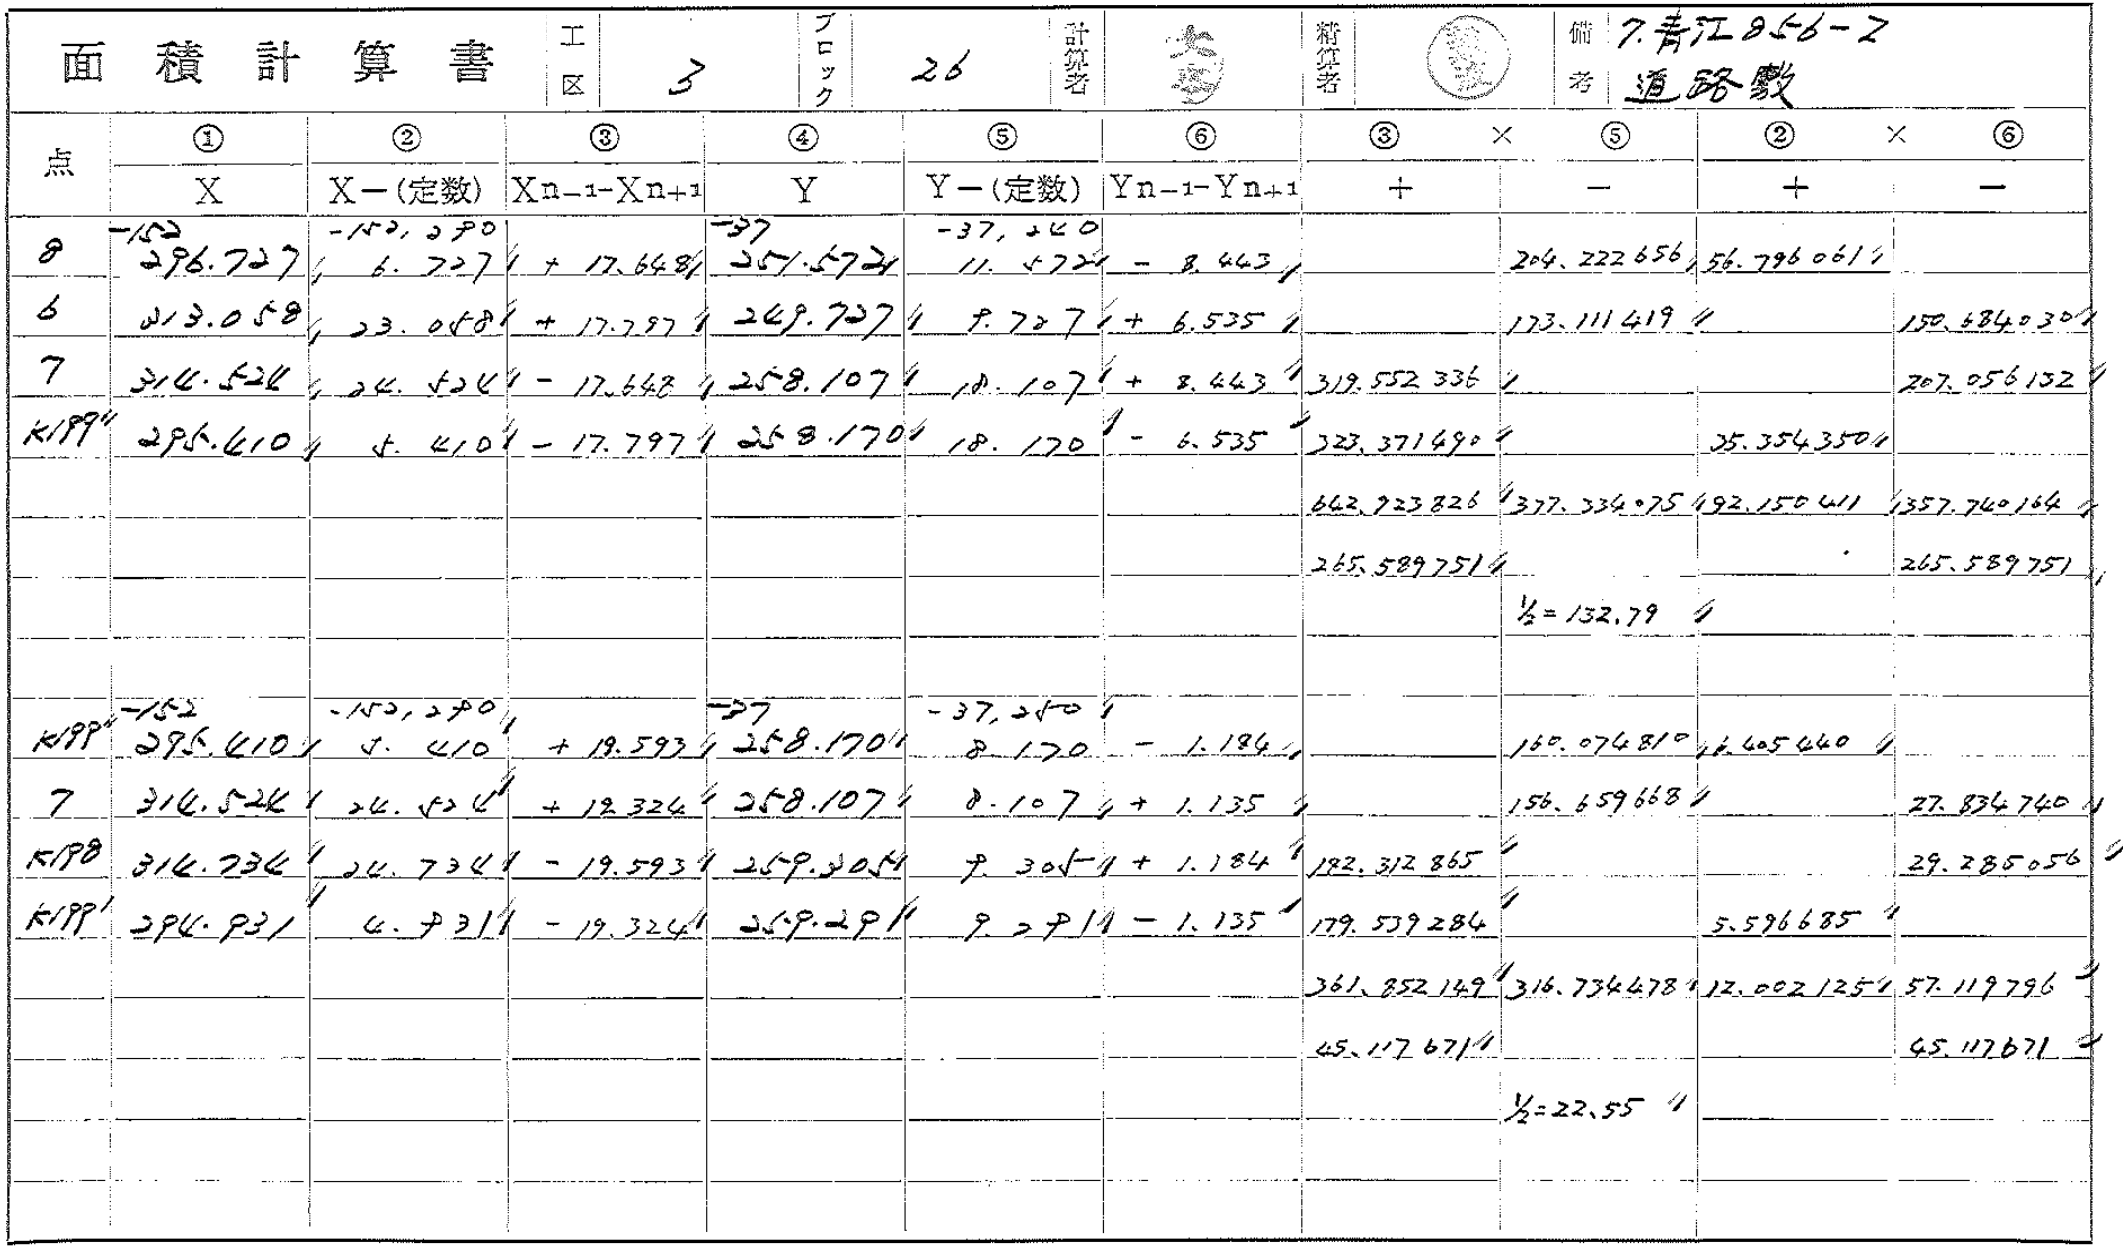 面積計算書 工区 3 ブロック 26 計算者 精算者 備考 7.青江856-2
道路敷
点 ① ② ③ ④ ⑤ ⑥ ③ × ⑤ ② × ⑥
X X-(定数) Xn-1-Xn+1 Y Y-(定数) Yn-1-Yn+1 + - + -
-152 -152,290 -37 -37,240
8 296.727 6.727 + 17.648 251.572 11.572 - 8.443 204.222656 56.796061
6 313.058 23.058 + 17.797 249.727 9.727 + 6.535 173.111419 150.684030
7 314.524 24.524 - 17.648 258.107 18.107 + 8.443 319.552336 207.056132
K199" 295.410 5.410 - 17.797 258.170 18.170 - 6.535 323.371490 35.354350
642.923826 377.334075 92.150411 357.740164
265.589751 265.589751
1/2=132.79
-152 -152,290 -37 -37,250
K199" 295.410 5.410 + 19.593 258.170 8.170 - 1.184 160.074810 6.405440
7 314.524 24.524 + 19.324 258.107 8.107 + 1.135 156.659668 27.834740
K198 314.734 24.734 - 19.593 259.305 9.305 + 1.184 182.312865 29.285056
K199' 294.931 4.931 - 19.324 259.291 9.291 - 1.135 179.539284 5.596685
361.852149 316.734478 12.002125 57.119796
45.117671 45.117671
1/2=22.55